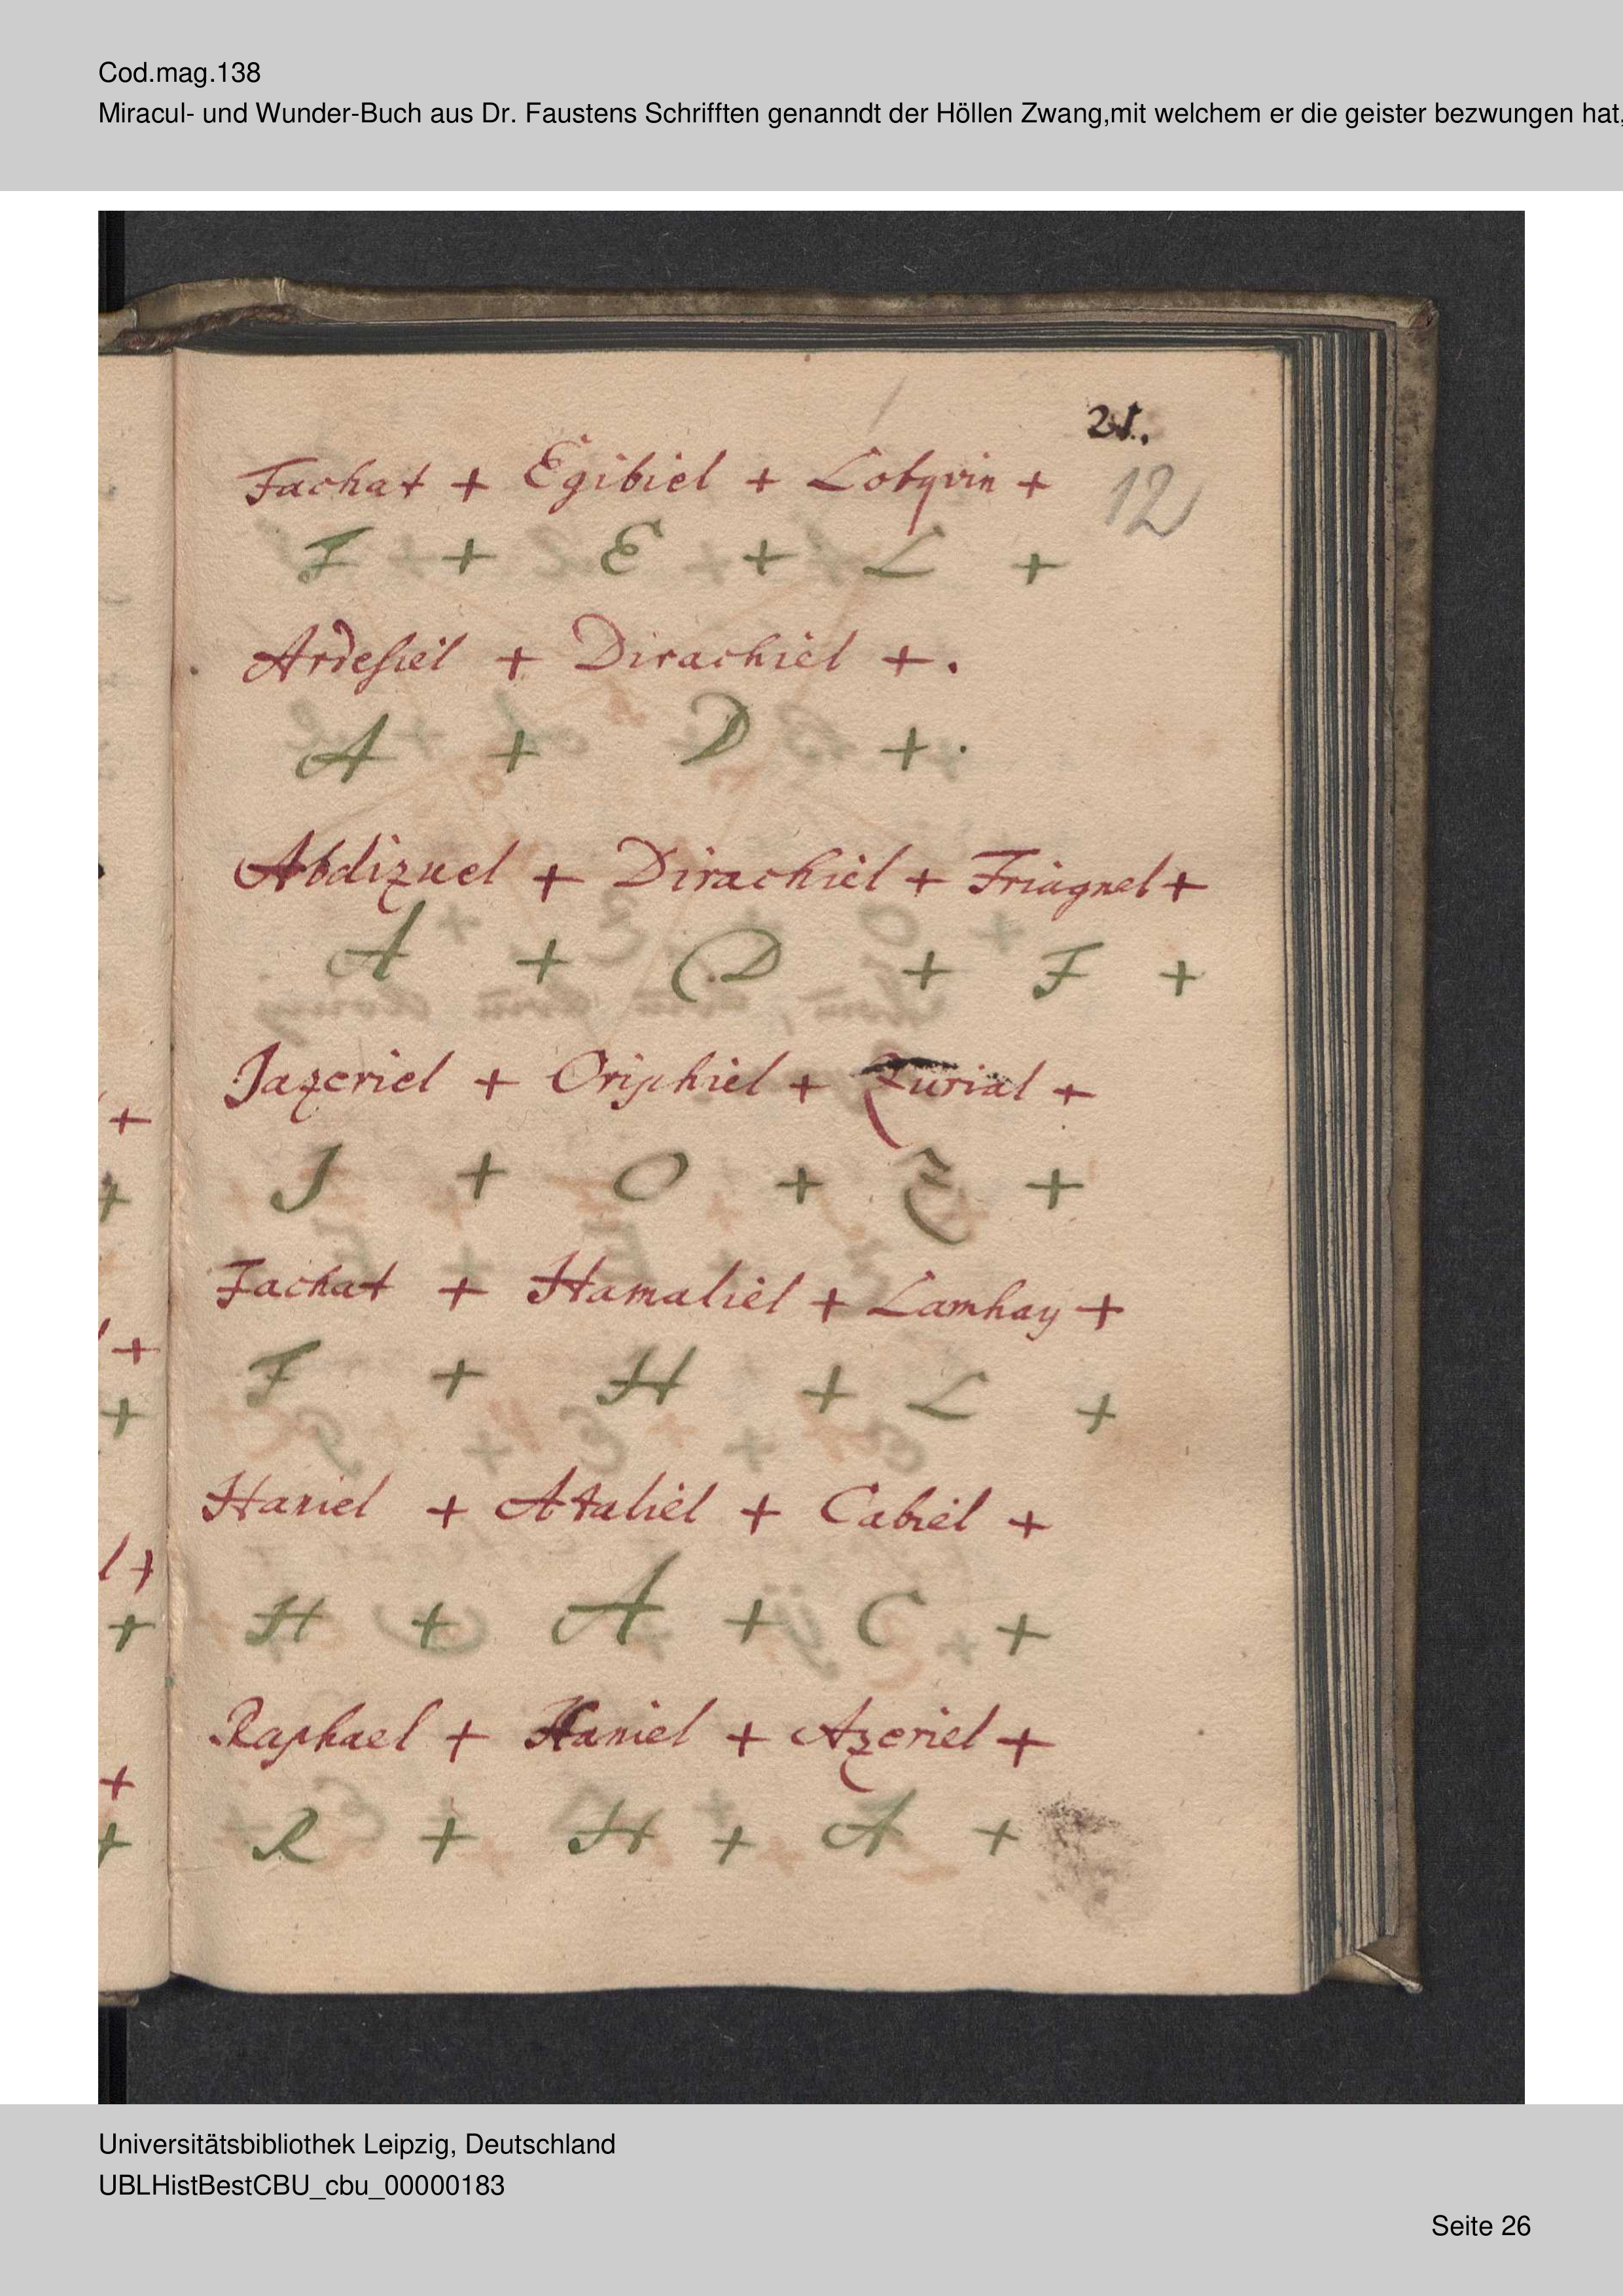 Cod.mag.138
Miracul- und Wunder-Buch aus Dr. Faustens Schrifften genanndt der Höllen Zwang,mit welchem er die geister bezwungen hat,
21.
12
Fachat + Egibiel + Lotqvin +
F + E + L +
Ardesiel + Dirachiel +.
A + D +.
Abdizuel + Dirachiel + Friagnel +
A + D + F +
Jazeriel + Oriphiel + Zurial +
J + O + Z +
Fachat + Hamaliel + Lamhay +
F + H + L +
Haniel + Ataliel + Cabiel +
H + A + C +
Raphael + Haniel + Azeriel +
R + H + A +
Universitätsbibliothek Leipzig, Deutschland
UBLHistBestCBU_cbu_00000183
Seite 26